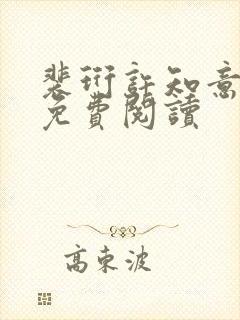 裴衍許知意
免費閱讀
高東波